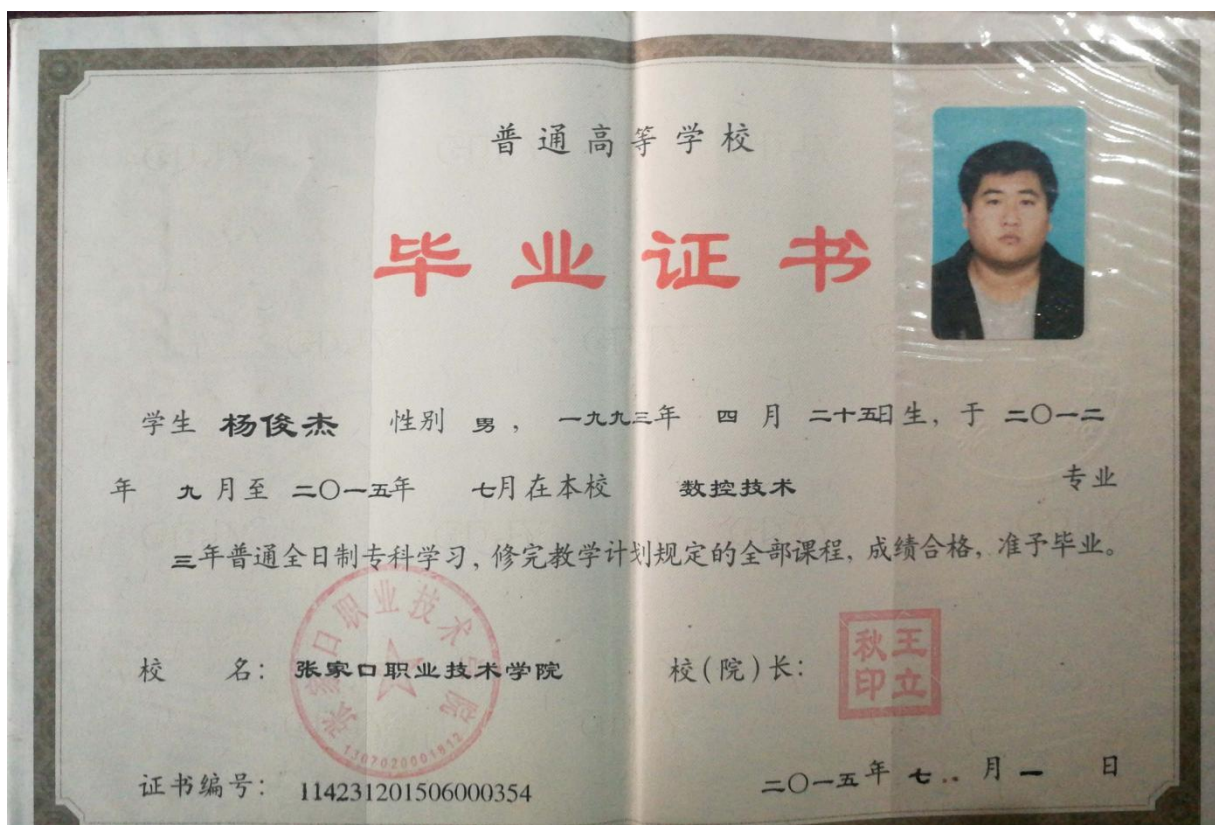 普通高等学校
毕业证书
学生 杨俊杰 性别 男 ， 一九九三年 四 月 二十五日生，于 二〇一二
年 九 月至 二〇一五年 七月在本校 数控技术 专业
三年普通全日制专科学习，修完教学计划规定的全部课程，成绩合格，准予毕业。
校 名： 张家口职业技术学院 校(院)长：
张家口职业技术学院
1307020001812
王立秋印
证书编号： 114231201506000354 二〇一五年 七 月 一 日